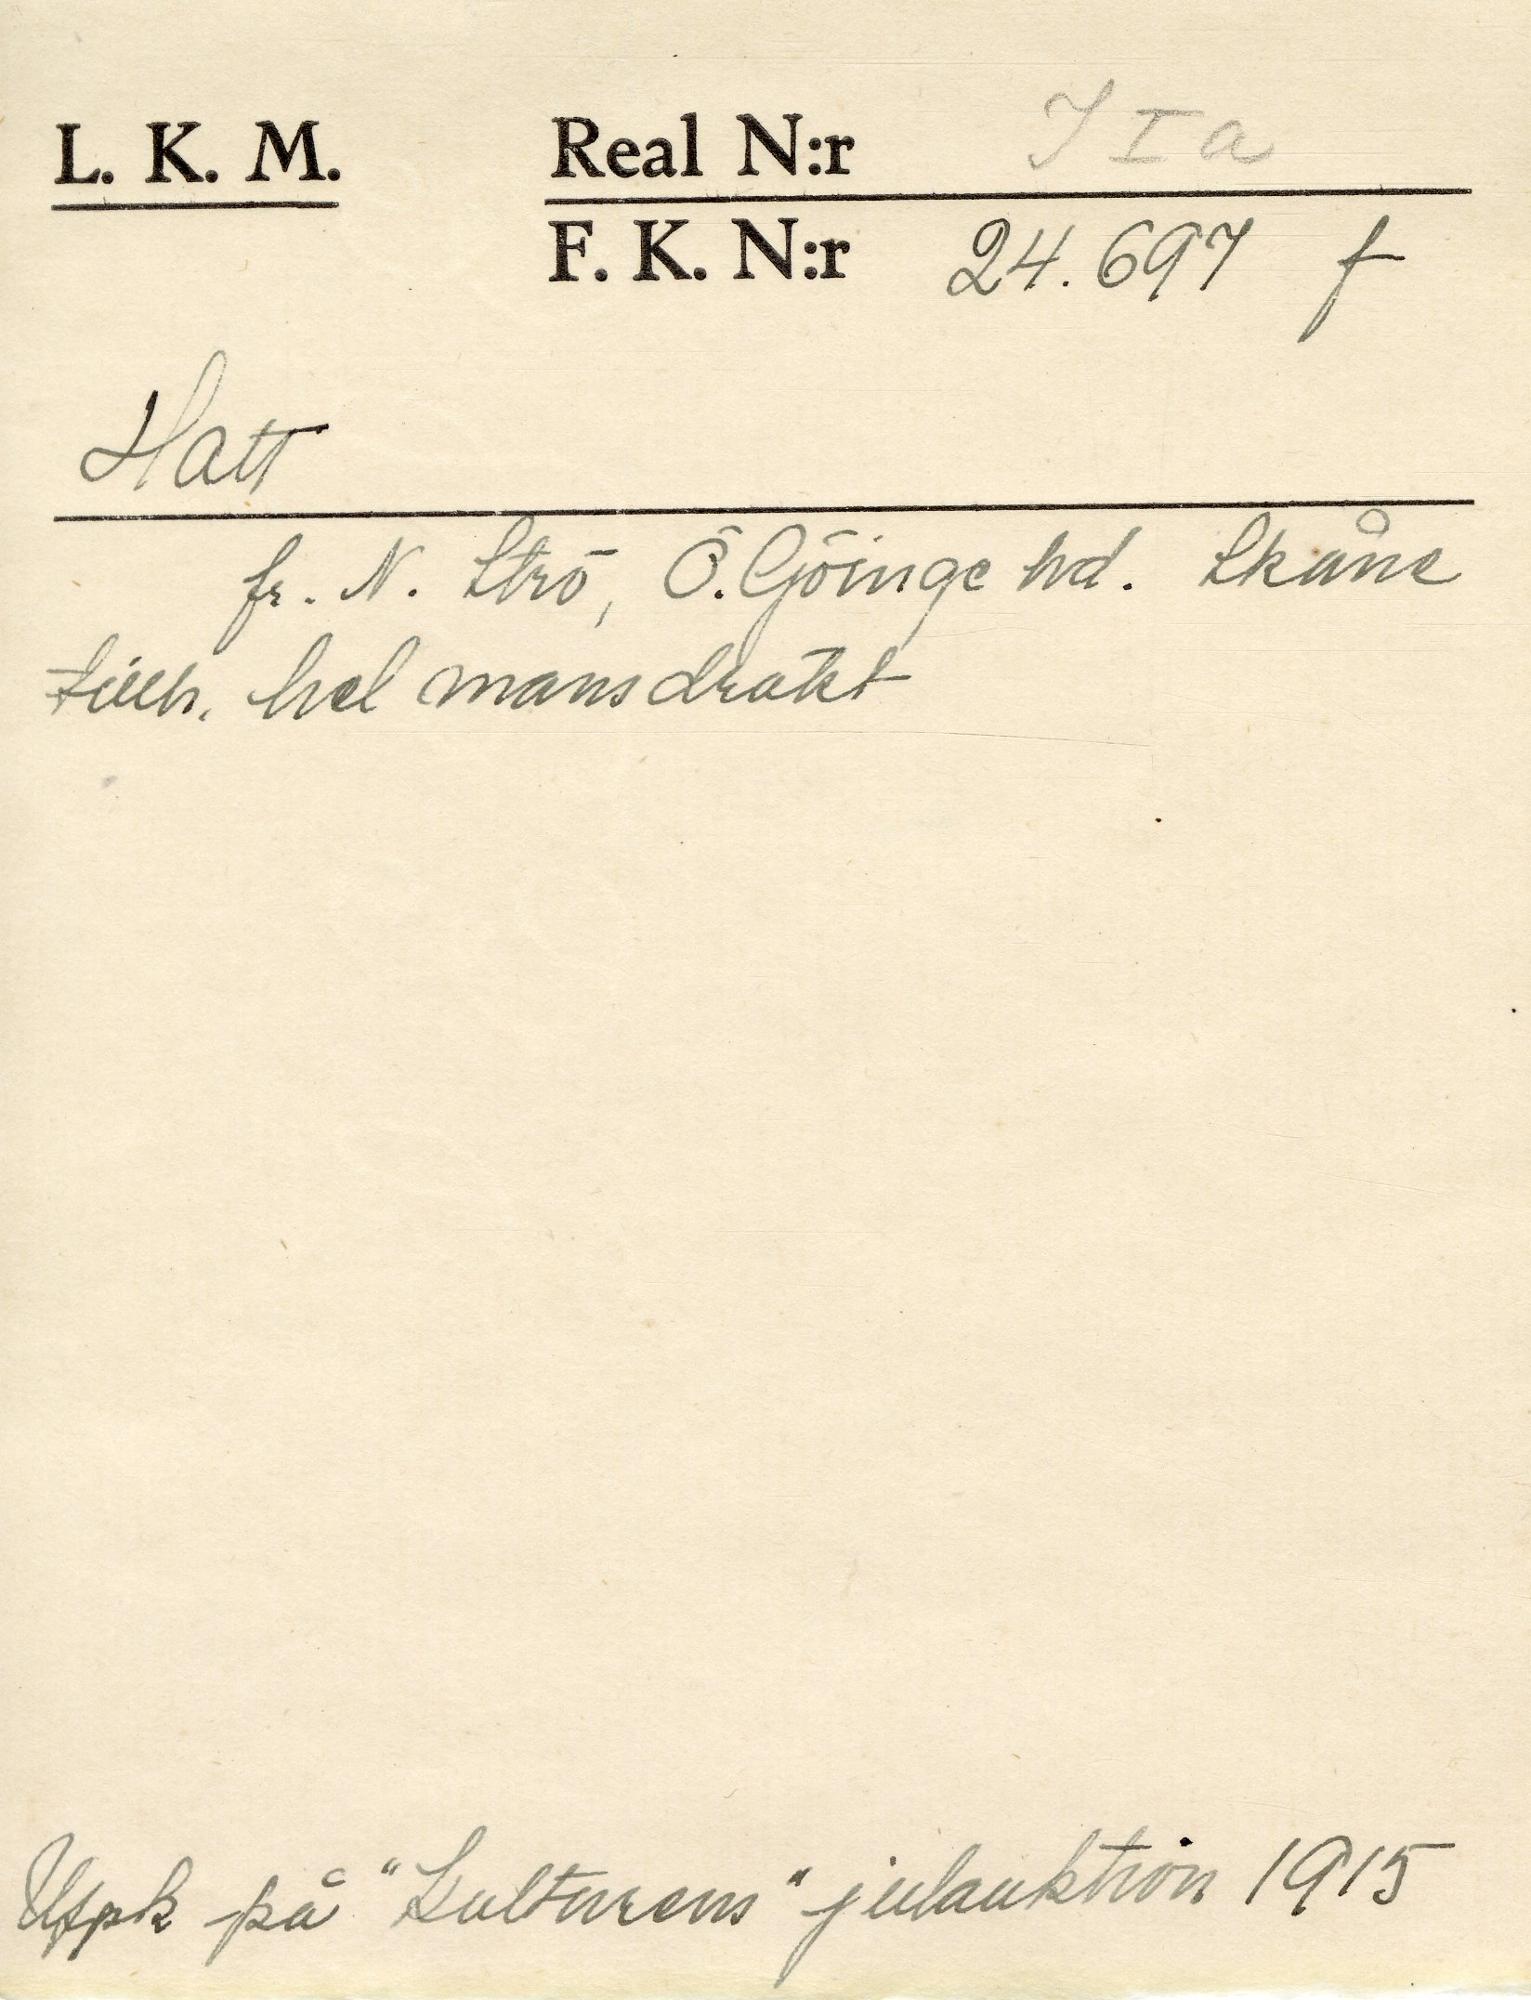 L. K. M. Real N:r I I a
F. K. N:r 24.697 f
Hatt
fr. N. Strö, Ö. Göinge hd. Skåne
tillh. hel mansdräkt
Uppk på "Kulturens" julauktion 1915